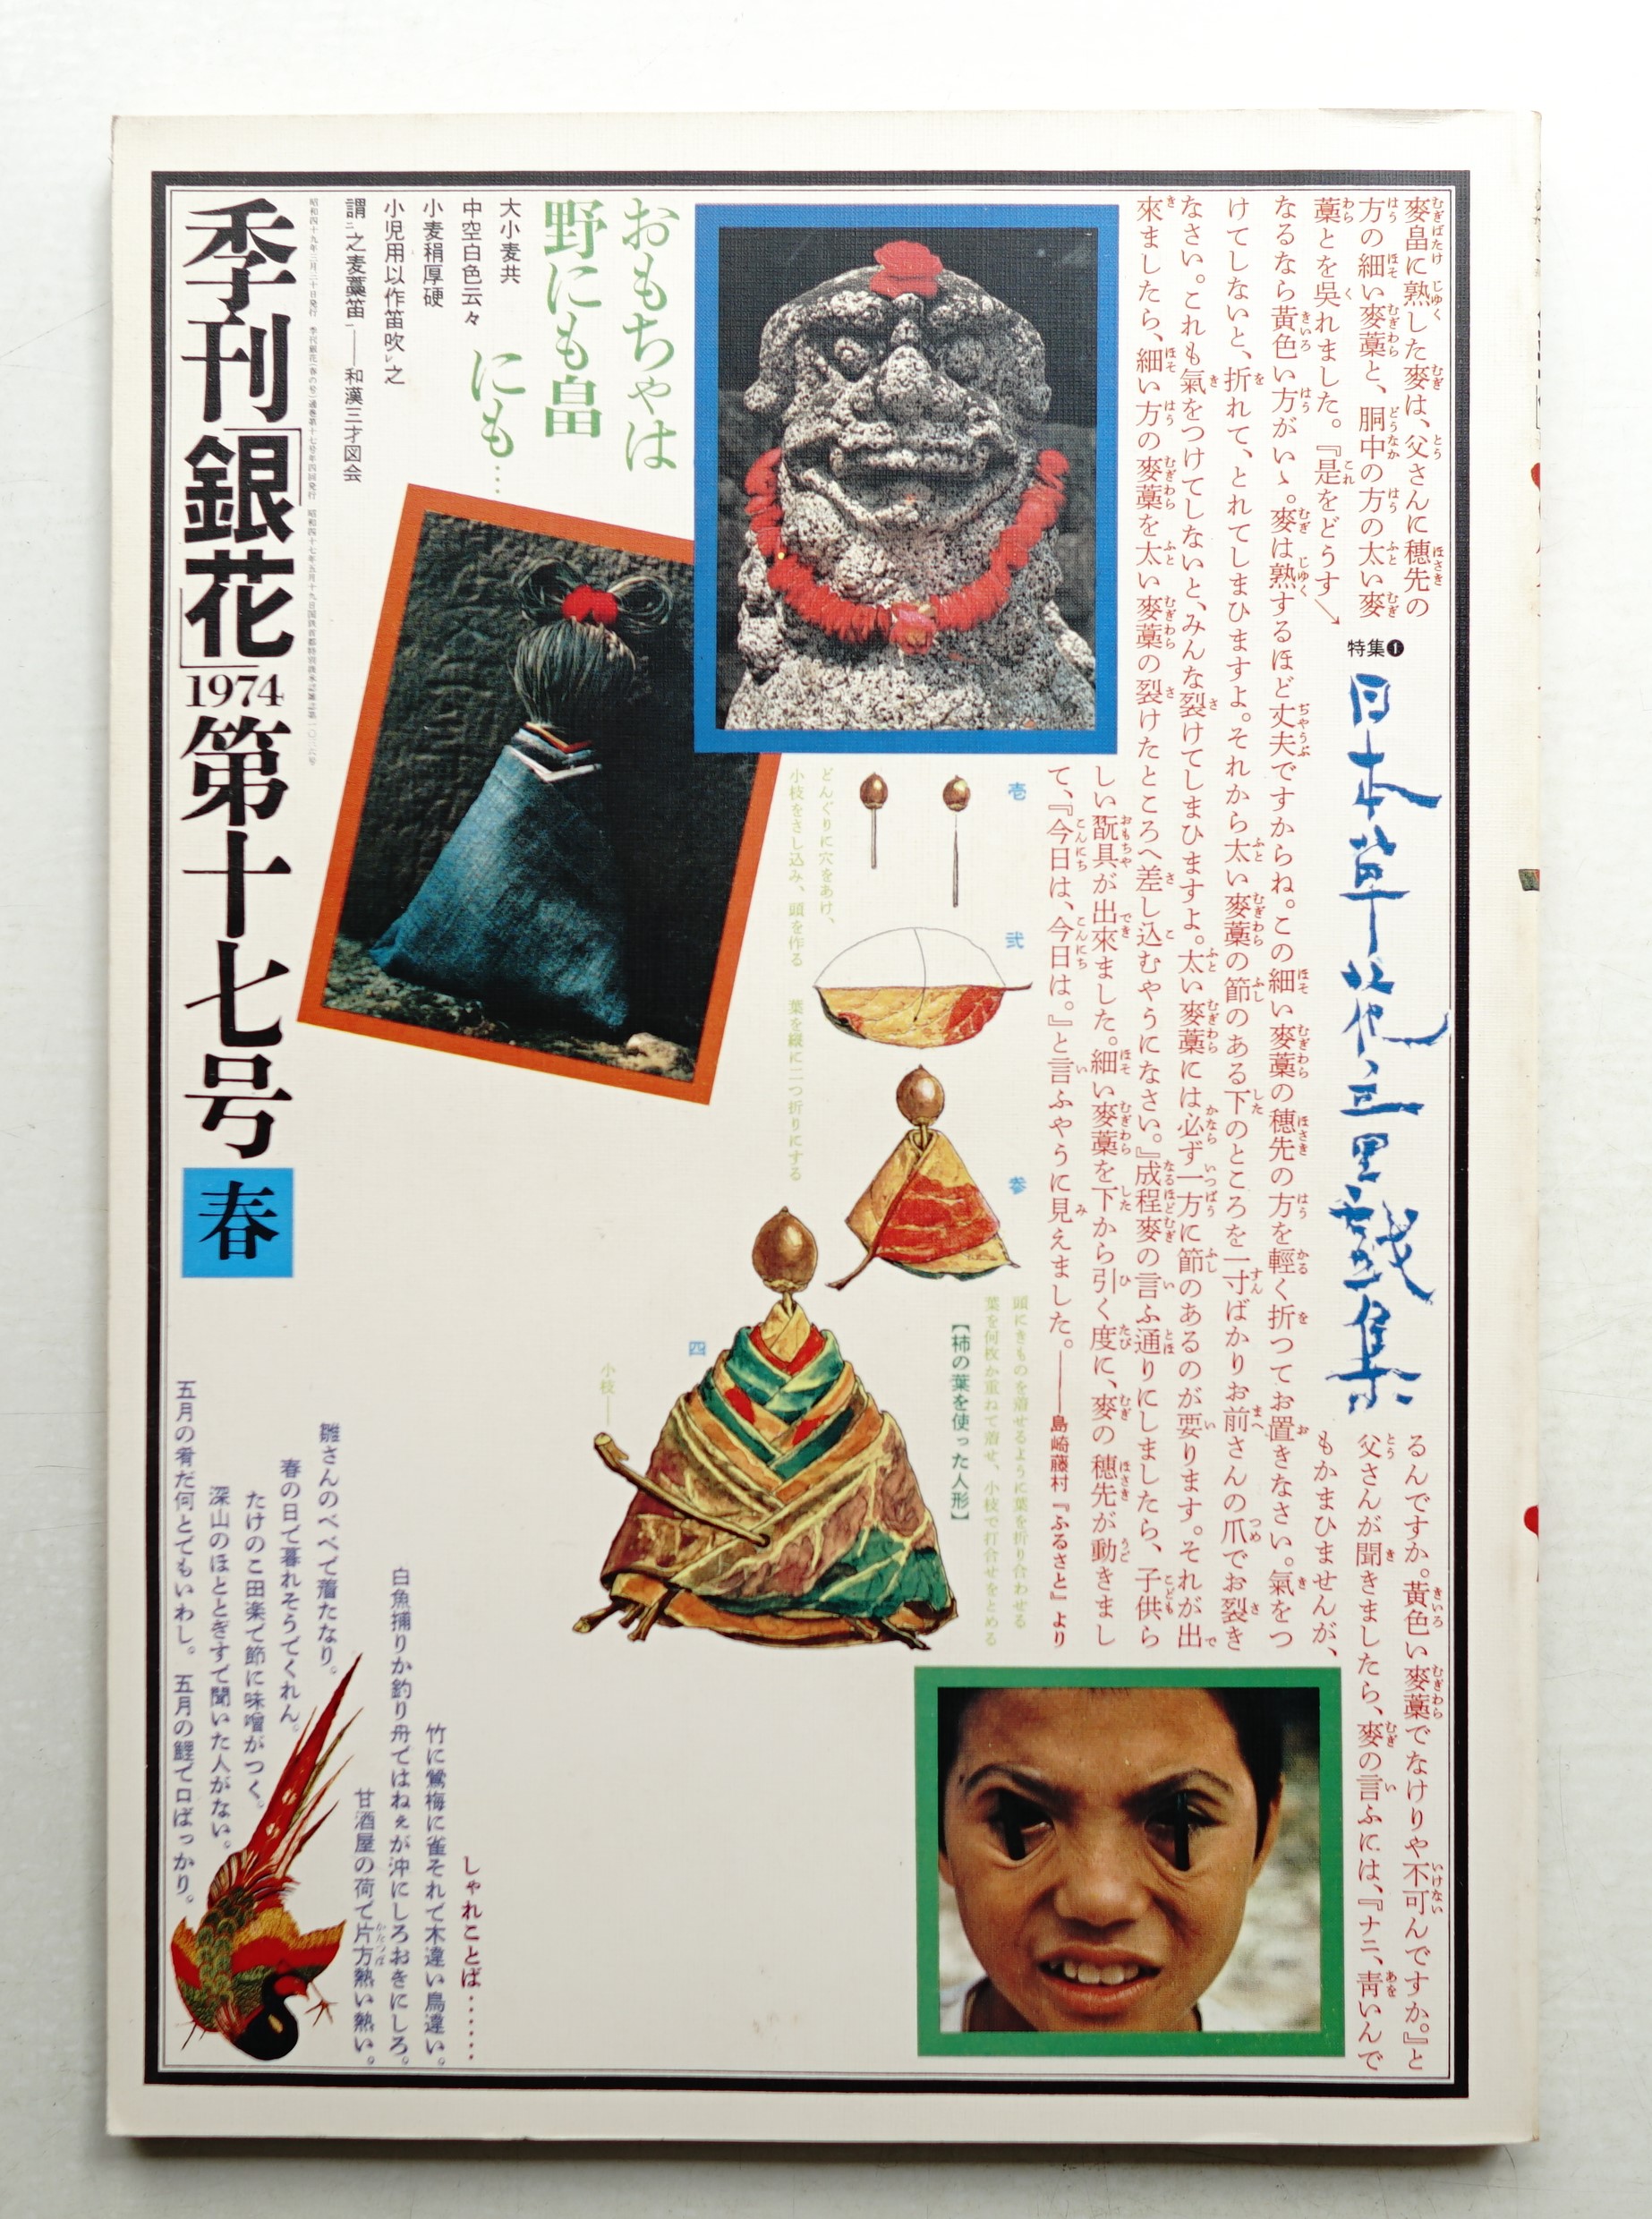 季刊「銀花」1974第十七号
春
おもちゃは
野にも畠
にも…
大小麦共
中空白色云々
小麦稍厚硬
小児用以作笛吹レ之
謂ニ之麦藁笛一——和漢三才図会
特集❶
日本草花立里戯集
麥畠に熟した麥は、父さんに穗先の
方の細い麥藁と、胴中の方の太い麥
藁とを吳れました。『是をどうす
るんですか。黃色い麥藁でなけりや不可んですか。』と
父さんが聞きましたら、麥の言ふには、『ナニ、靑いんで
もかまひませんが、
なるなら黃色い方がいゝ。麥は熟するほど丈夫ですからね。この細い麥藁の穗先の方を輕く折つてお置きなさい。氣をつ
けてしないと、折れて、とれてしまひますよ。それから太い麥藁の節のある下のところを一寸ばかりお前さんの爪でお裂き
なさい。これも氣をつけてしないと、みんな裂けてしまひますよ。太い麥藁には必ず一方に節のあるのが要ります。それが出
來ましたら、細い方の麥藁を太い麥藁の裂けたところへ差し込むやうになさい。』成程麥の言ふ通りにしましたら、子供ら
しい翫具が出來ました。細い麥藁を下から引く度に、麥の穗先が動きまし
て、『今日は、今日は。』と言ふやうに見えました。——島崎藤村『ふるさと』より
壱
どんぐりに穴をあけ、
小枝をさし込み、頭を作る
弐
葉を縦に二つ折りにする
参
頭にきものを着せるように葉を折り合わせる
葉を何枚か重ねて着せ、小枝で打合せをとめる
【柿の葉を使った人形】
四
小枝——
しゃれことば……
竹に鶯梅に雀それで木違い鳥違い。
白魚捕りか釣り舟ではねぇが沖にしろおきにしろ。
甘酒屋の荷で片方熱い熱い。
雛さんのべべで着たなり。
春の日で暮れそうでくれん。
たけのこ田楽で節に味噌がつく。
深山のほととぎすで聞いた人がない。
五月の肴だ何とでもいわし。五月の鯉で口ばっかり。